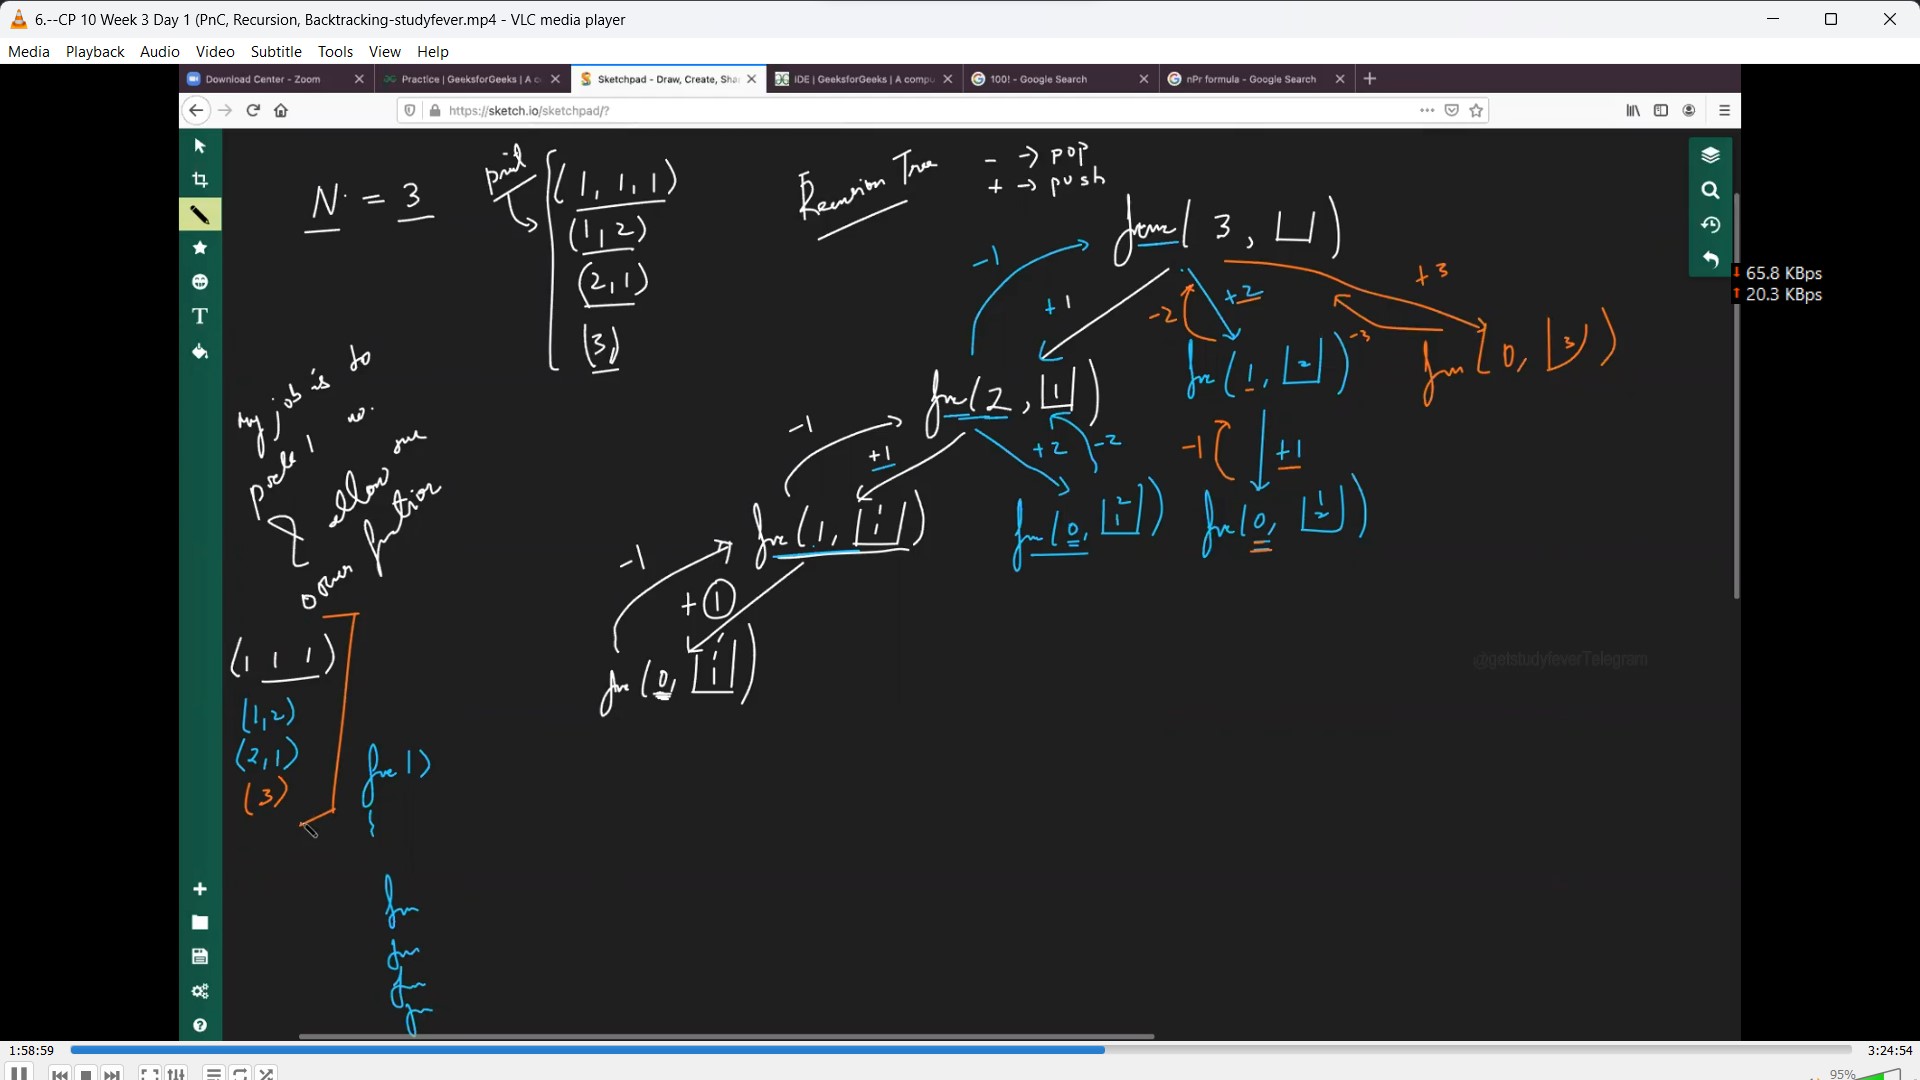 6.--CP 10 Week 3 Day 1 (PnC, Recursion, Backtracking-studyfever.mp4 - VLC media player
Media Playback Audio Video Subtitle Tools View Help
Download Center - Zoom
Practice | GeeksforGeeks | A c
Sketchpad - Draw, Create, Sha
IDE | GeeksforGeeks | A compu
100! - Google Search
nPr formula - Google Search
https://sketch.io/sketchpad/?
N = 3
print
(1, 1, 1)
(1, 2)
(2, 1)
(3)
Recursion Tree
- -> pop
+ -> push
func( 3, )
-1
+1
-2
+2
+3
-3
func(2, 1)
func(1, 2)
func(0, 3)
-1
+1
+2
-2
-1
+1
func(1, 1 1)
func(0, 2 1)
func(0, 1 2)
-1
+ 1
func(0, 1 1 1)
My job is to
1 no.
& allow
other function
(1 1 1)
(1,2)
(2,1)
(3)
65.8 KBps
20.3 KBps
@getstudyfeverTelegram
1:58:59
3:24:54
95%